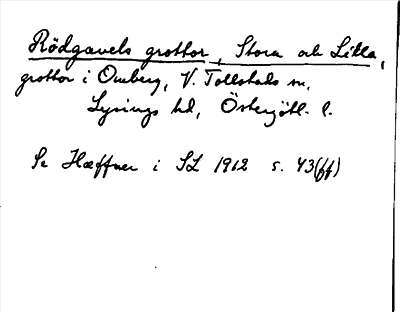 Rödgavels grottor, Stora och Lilla,
grottor i Omberg, V. Tollstads sn,
Lysings hd, Östergötl. l.
Se Hæffner i SL 1962 s. 43(ff)